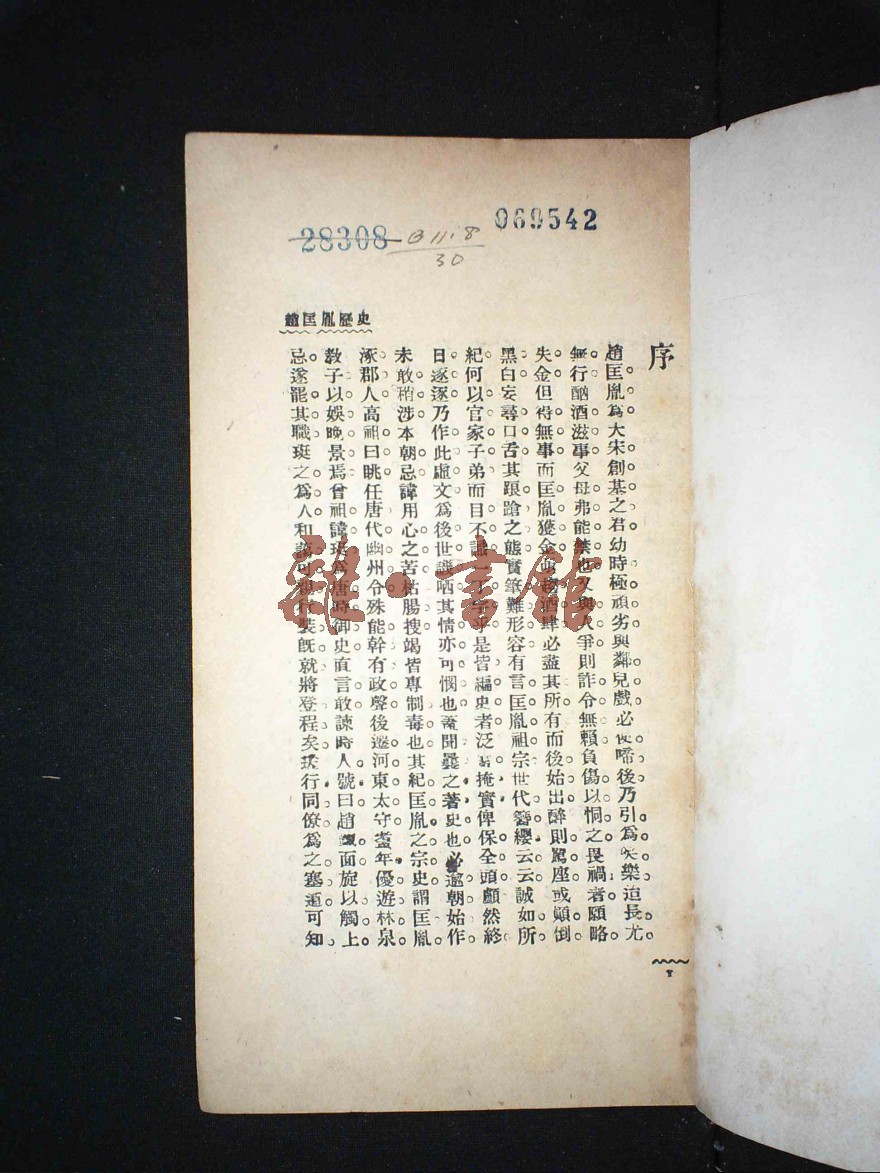 28308
069542
B 11.8
30
趙匡胤歷史
序
趙匡胤爲大宋創基之君幼時極頑劣與鄰兒戲必使啼後乃引爲笑樂迨長尤
無行酗酒滋事父母弗能禁也又與人爭則詐令無賴負傷以恫之畏禍者願略
失金但得無事而匡胤獲金酒肆必盡其所有而後始出醉則罵座或顚倒
黑白妄尋口舌其踉蹌之態實筆難形容有言匡胤祖宗世代簪纓云云誠如所
紀何以官家子弟而目不識一丁字乎是皆編史者泛掩實俾保全頭顱然終
日逐逐乃作此虛文爲後世譏哂其情亦可憫也蓋聞曩之著史也必邀朝始作
未敢稍涉本朝忌諱用心之苦枯腸搜竭皆專制毒也其紀匡胤之宗史謂匡胤
涿郡人高祖曰眺任唐代幽州令殊能幹有政聲後遷河東太守耋年優遊林泉
敎子以娛晚景焉曾祖諱珽爲唐時御史直言敢諫時人號曰趙面旋以觸上
忌遂罷其職珽之爲人和藹可親行裝旣就將登程矣瀕行同僚爲之塞道可知
1
雜·書館